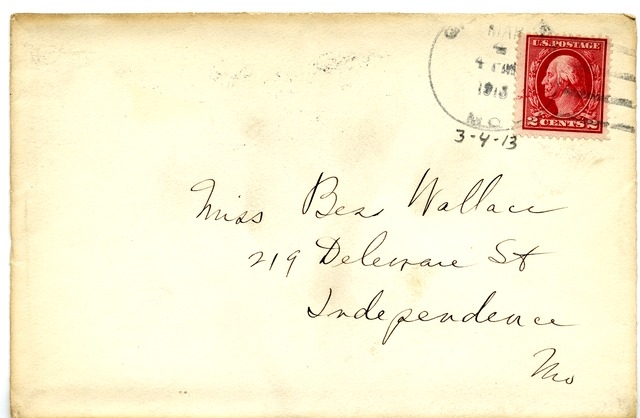 MAR
4 PM
1913
MO.
U.S. POSTAGE
2 CENTS 2
3-4-13
Miss Bess Wallace
219 Deleware St
Independence
Mo